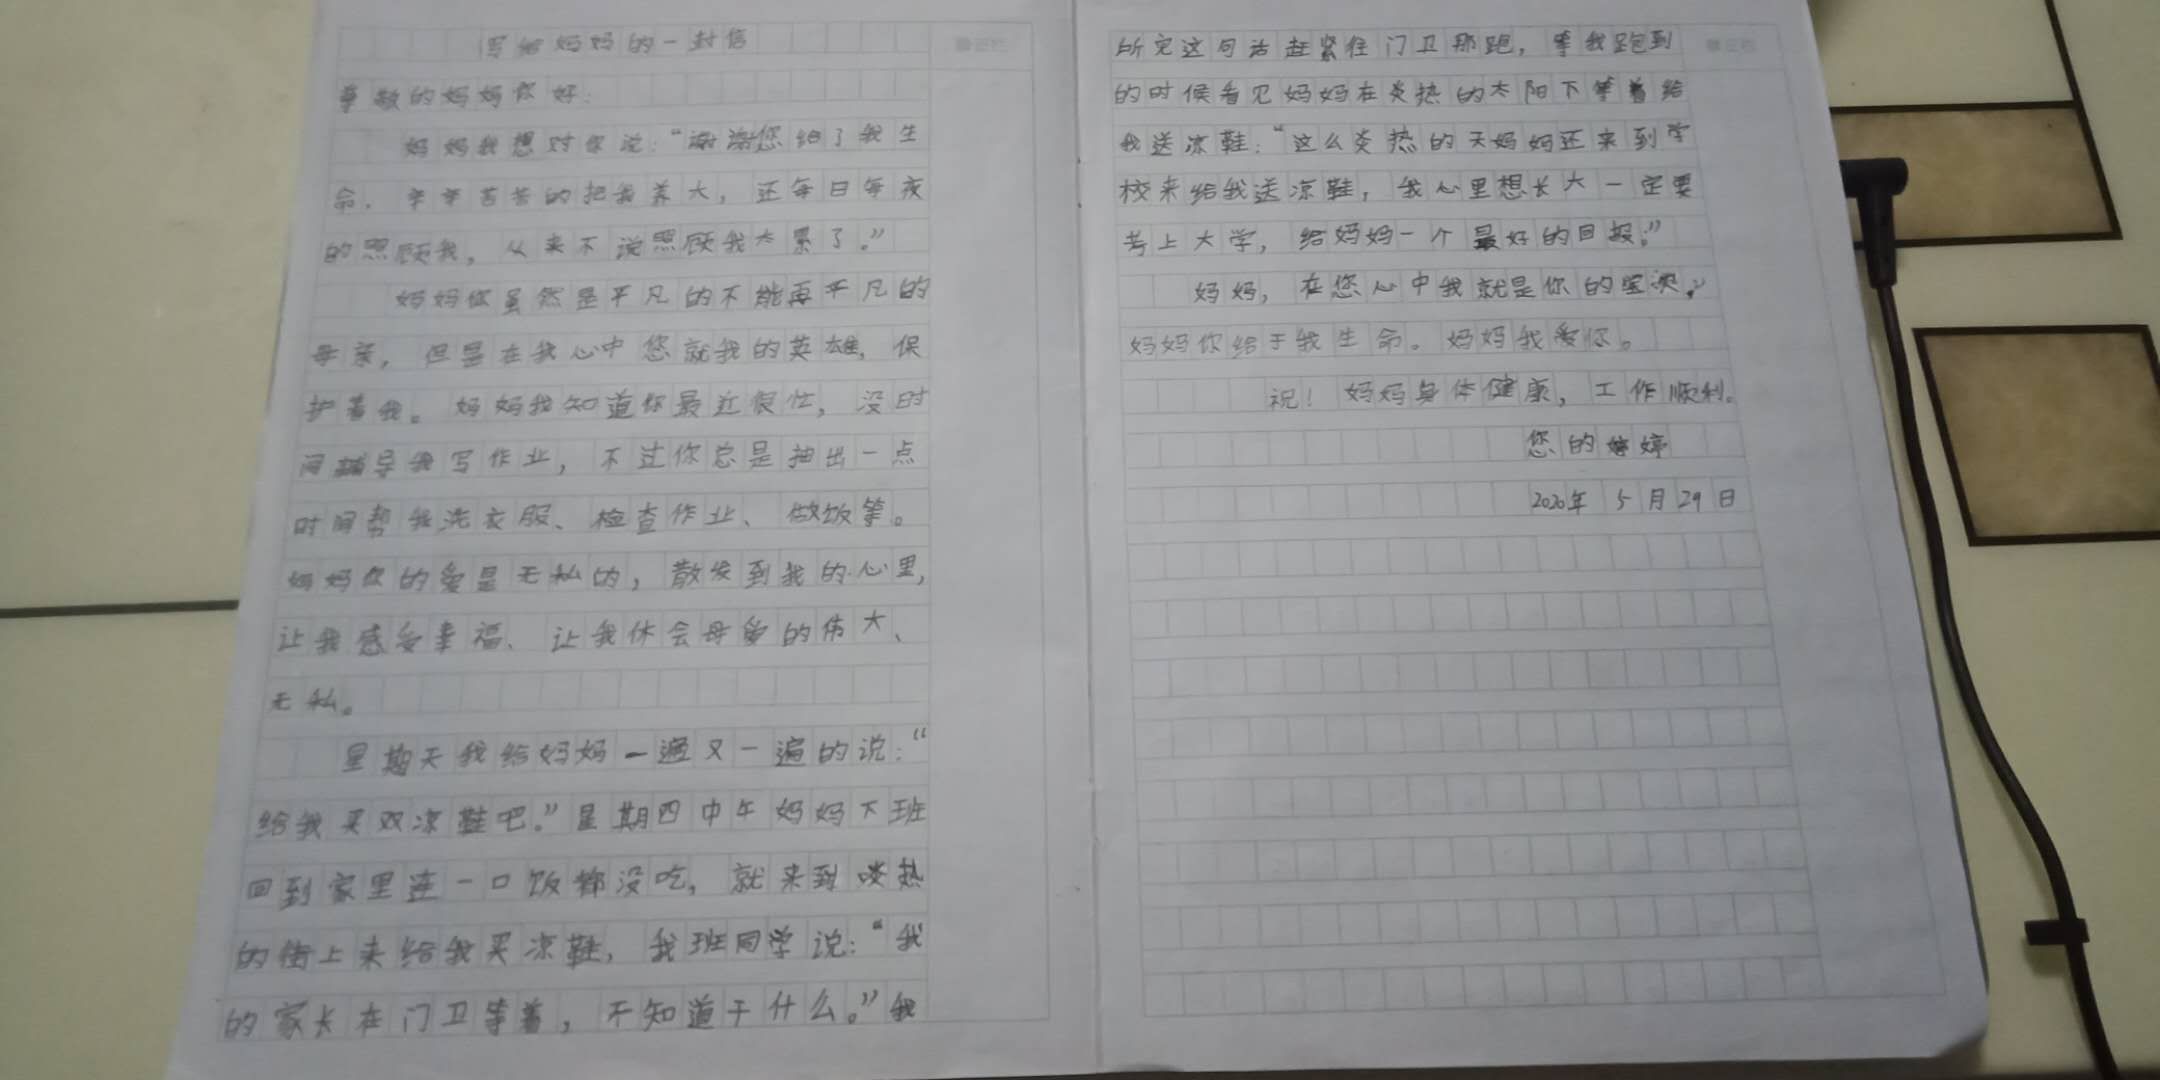 写给妈妈的一封信
尊敬的妈妈你好:
妈妈我想对你说:“谢谢您给了我生
命.辛辛苦苦的把我养大,还每日每夜
的照顾我,从来不说照顾我太累了。”
妈妈你虽然是平凡的不能再平凡的
母亲,但是在我心中您就我的英雄,保
护着我。妈妈我知道你最近很忙,没时
间辅导我写作业,不过你总是抽出一点
时间帮我洗衣服、检查作业、做饭等。
妈妈你的爱是无私的,散发到我的心里,
让我感受幸福、让我体会母爱的伟大、
无私。
星期天我给妈妈一遍又一遍的说:“
给我买双凉鞋吧。”星期四中午妈妈下班
回到家里连一口饭都没吃,就来到炎热
的街上来给我买凉鞋,我班同学说:“我
的家长在门卫等着,不知道干什么。”我
听完这句话赶紧往门卫那跑,等我跑到
的时候看见妈妈在炎热的太阳下等着给
我送凉鞋:“这么炎热的天妈妈还来到学
校来给我送凉鞋,我心里想长大一定要
考上大学,给妈妈一个最好的回报。”
妈妈,在您心中我就是你的宝贝,
妈妈你给于我生命。妈妈我爱你。
祝!妈妈身体健康,工作顺利。
您的婷婷
2020年5月29日